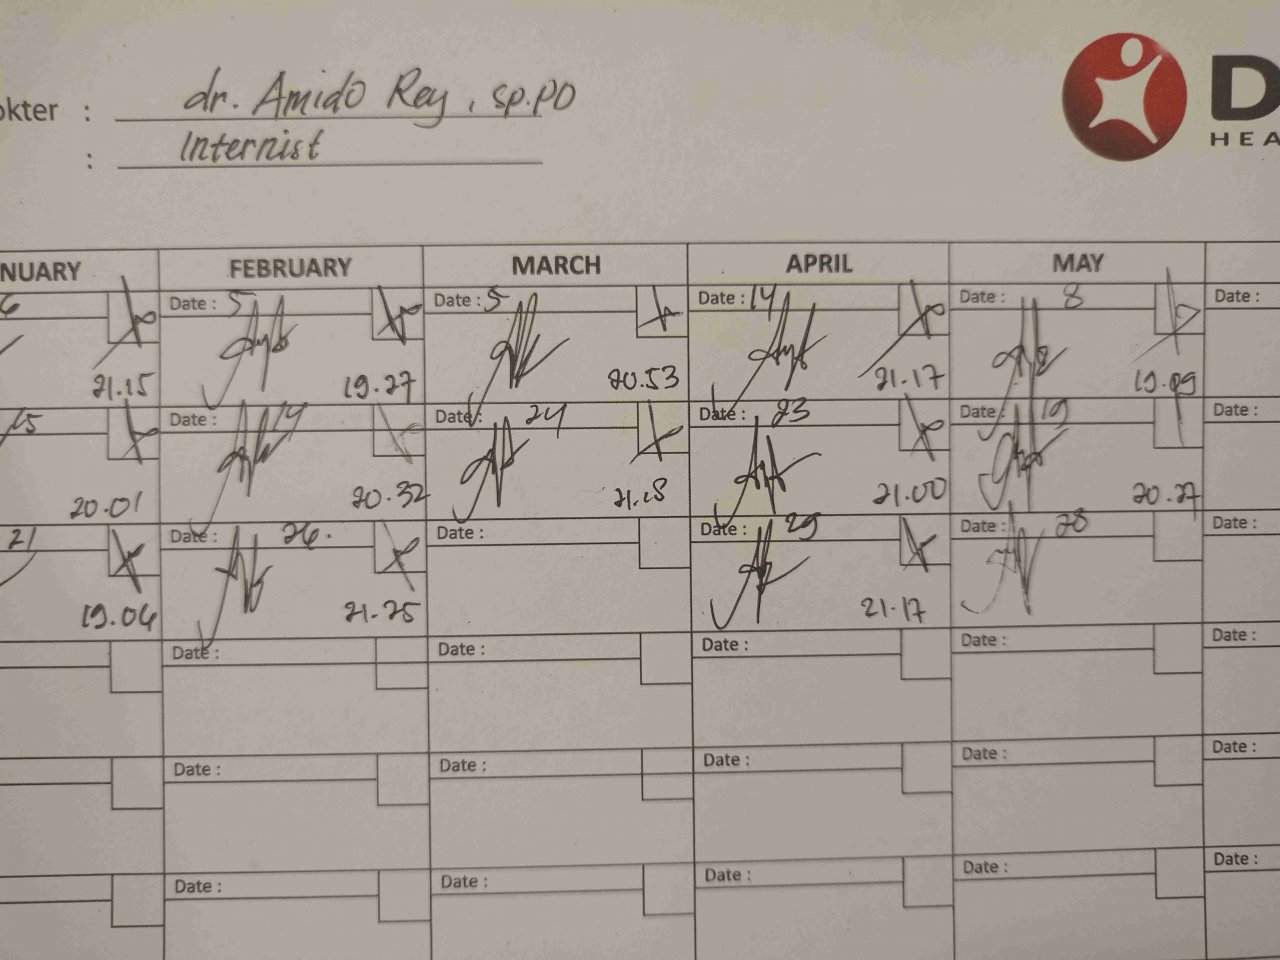 okter : dr. Amido Rey, sp.PD
: Internist
D
HEA
NUARY FEBRUARY MARCH APRIL MAY
6 Date : 5 Date : 5 Date : 14 Date : 8 Date :
21.15 19.27 20.53 21.17 19.09
15 Date : 14 Date : 24 Date : 23 Date : 19 Date :
20.01 20.32 21.18 21.00 20.27
21 Date : 26. Date : Date : 29 Date : 28 Date :
19.04 21.25 21.17
Date : Date : Date : Date : Date :
Date : Date : Date : Date : Date :
Date : Date : Date : Date : Date :